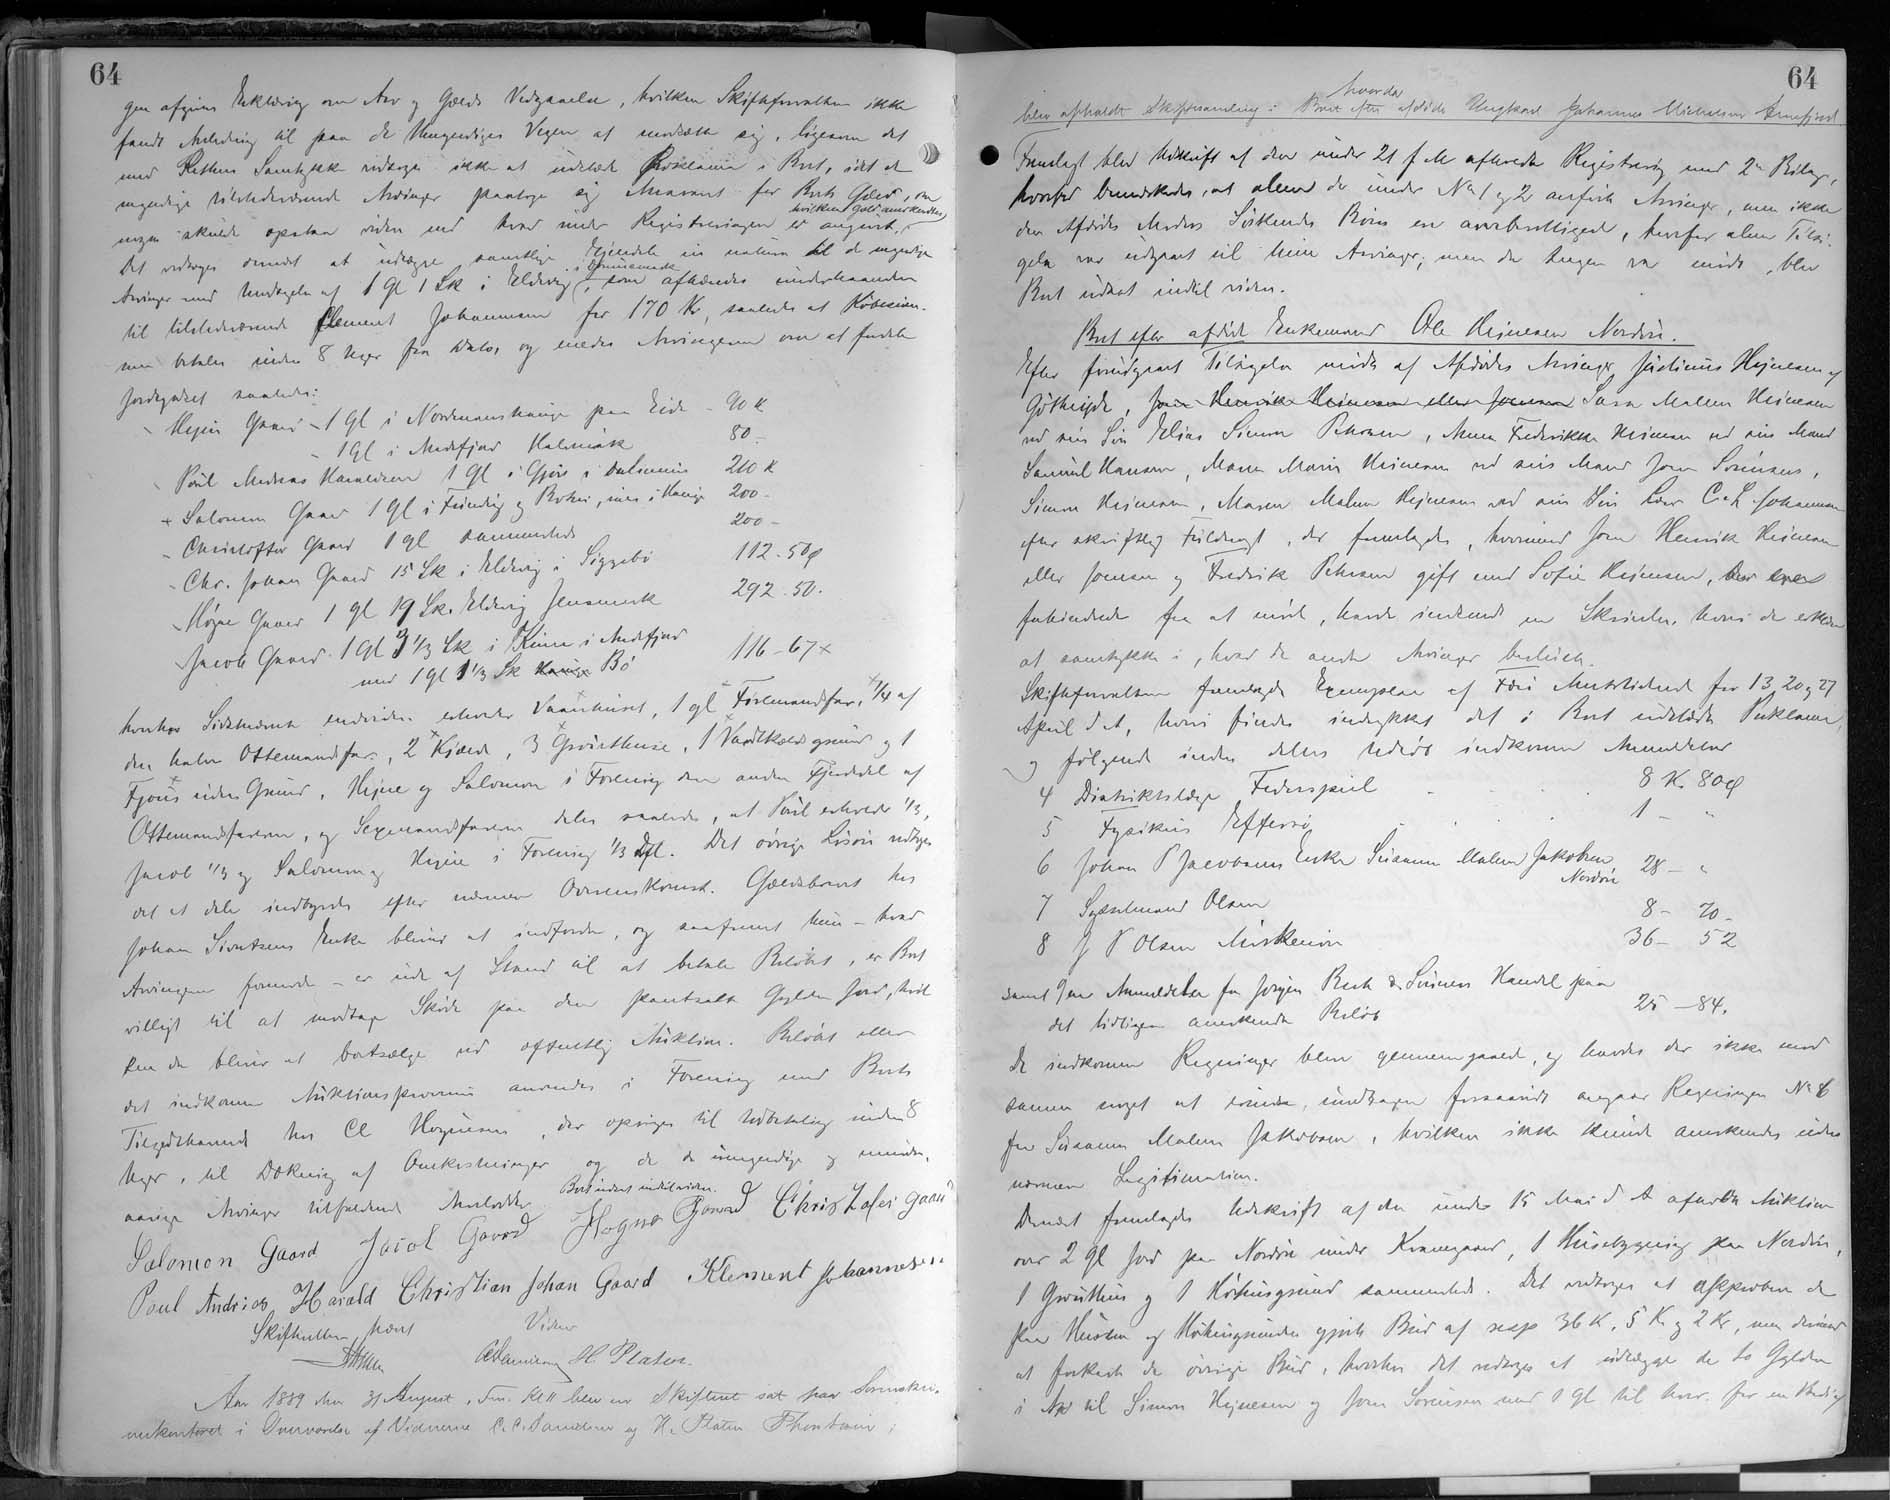 64
gen afgives Erklæring om Arv og Gælds Vedgaaelse, hvilken Skifteforvalteren ikke
fandt Anledning til paa de Umyndiges Vegne at modsætte sig, ligesom det
med Rettens Samtykke vedtoges ikke at udstede Proklama i Boet, idet de
myndige tilstedeværende Arvinger paatoge sig Ansvaret for Boets Gæld, om
nogen skulde opstaa uden ved hvad under Registreringen er angivet,
hvilken Gæld anerkendtes
Det vedtoges derefter at udlægge samtlige Ejendele in natura til de myndige
Arvinger med Undtagelse af 1 Gl 1 Sk i Eldevig, som afhændes underhaanden
til tilstedeværende Clement Johannesen for 170 Kr, saaledes at Købesum-
men betales inden 8 Uger fra Dato, og enedes Arvingerne om at fordele
Jordegodset saaledes:
Hejne Gaard 1 gl i Nordmanshauge paa Eide - 90 K
1 gl i Andefjord 80
Poul Andreas Haraldsen 1 Gl i Gjov i 210 K
Salomon Gaard 1 gl i Funding og Botni, 200 -
Christoffer Gaard 1 gl sammesteds 200 -
Chr. Johan Gaard 15 Sk i Eldevig i Siggebø 112 - 50 ø
Højne Gaard 1 gl 19 Sk. Eldevig 292 - 50.
Jacob Gaard 1 gl 9 1/3 Sk i i Andefjord
med 1 gl 1 1/3 Sk Bø 116 - 67 x
hvorhos Sidstnævnte endvidere erholder Vaanhuset, 1 gl Firemandsfar, 1/4 af
den halve Ottemandsfar, 2 Kjælde, 3 Groithuse, 1 grund og 1
Fjøs uden Grund, Hejne og Salomon i Forening den anden Fjerdedel af
Ottemandsfaren, og Sexmandsfaren deles saaledes, at Poul erholder 1/3,
Jacob 1/3 og Salomon og Hejne i Forening 1/3 Del. Det øvrige Løsøre vedtoges
det at dele indbyrdes efter nærmere Overenskomst. Gældsbrevet hos
Johan Sivertsens Enke bliver at indfordre, og saafremt hun - hvad
Arvingerne formode - er ude af Stand til at betale Beløbet, er Boet
villigt til at modtage Skøde paa den pantsatte Gylden Jord, hvil
ken da bliver at bortsælge ved offentlig Auktion. Beløbet eller
det indkomne Auktionsprovenu anvendes i Forening med Boets
Tilgodehavende hos Cl Hognesen, der opsiges til Udbetaling inden 8
Uger, til Dækning af Omkostninger og de de umyndige og mindre-
aarige Arvinger tilfaldende Arvelodder. Boet udsat indtil videre.
Salomon Gaard Jacob Gaard Hogne Gaard Christofer Gaard
Poul Andrias Harald Christian Johan Gaard Klement Johannesen
Skifteretten hævet
Vidner
CC Danielsen H. Platou.
Aar 1889 den 31 August, Fm. Kl 11 blev en Skifteret sat paa Sorenskri-
verkontoret i Overværelse af Vidnerne C. C. Danielsen og H. Platou Thorshavn;
64
hvorda
blev afholdt Skiftesamling i Boet efter afdøde Ungkarl Johannes Michelsen Arnefjord
Fremlagt blev Udskrift af den under 21 f M afholdte Registrering med 2de Bilag,
hvorfor bemærkedes, at alene de under No 1 og 2 anførte Arvinger, men ikke
den Afdødes Moders Søskendes Børn ere arveberettigede, hvorfor alene Tilsi-
gelse var udgaaet til hine Arvinger; men da Ingen var mødt, blev
Boet udsat indtil videre.
Boet efter afdøde Enkemand Ole Hejnesen Nordøre.
Efter forudgaaet Tilsigelse mødte af Afdødes Arvinger Justinus Hejnesen af
Gøtheyde, Joen Henrik Heinesen eller Joensen Sara Malene Heinesen
ved sin Søn Elias Simon Petersen, Anna Frederikke Heinesen ved sin Mand
Samuel Hansen, Maren Marie Heinesen ved sin Mand Joen Sørensen,
Simon Heinesen, Maren Malene Hejnesen ved sin Søn C. L. Johannesen
efter skriftlig Fuldmagt, der fremlagdes, hvorimod Joen Henrik Heinesen
eller Joensen og Fredrik Petersen gift med Sofie Hejnesen, der ere
forhindrede fra at møde, havde indsendt en Skrivelse, hvori de erklære
at samtykke i, hvad de andre Arvinger beslutte.
Skifteforvalteren fremlagde Exemplar af Færø Amtstidende for 13, 20 og 27
April d A, hvori findes indrykket det i Boet udstedte Proklama,
og følgende inden dettes Udløb indkomne Anmeldelser
4 Distriktslæge Federspiel 8 K. 80 ø
5 Fysikus Effersø 1 - "
6 Johan P Jacobsens Enke Susanne Malene Jakobsen
Nordøre 28 - "
7 Sysselmand Olsen 8 - 70 -
8 J P Olsen Miskenøre 36 - 52
samt 9 en Anmeldelse fra Jørgen Bech & Sønners Handel paa
det tidligere anerkendte Beløb 25 - 84.
De indkomne Regninger bleve gennemgaaede, og havdes der ikke mod
samme noget at erindre, undtagen forsaavidt angaar Regningen No 6
fra Susanne Malene Jakobsen, hvilken ikke kunde anerkendes uden
nærmere Legitimation.
Dernæst fremlagdes Udskrift af den under 15 Mai d A afholdte Auktion
over 2 gl Jord paa Nordøre under Kvanegaard, 1 Husebygning paa Nordøre,
1 Groithus og 1 Høhusgrund sammesteds. Det vedtoges at approbere de
paa Husene og Høhusgrunden gjorte Bud af resp 36 K, 5 K og 2 Kr, men derimod
at forkaste de øvrige Bud, hvorhos det vedtoges at udlægge de to Gylden
i Arv til Simon Hejnesen og Joen Sørensen med 1 gl til hver for en Værdi af